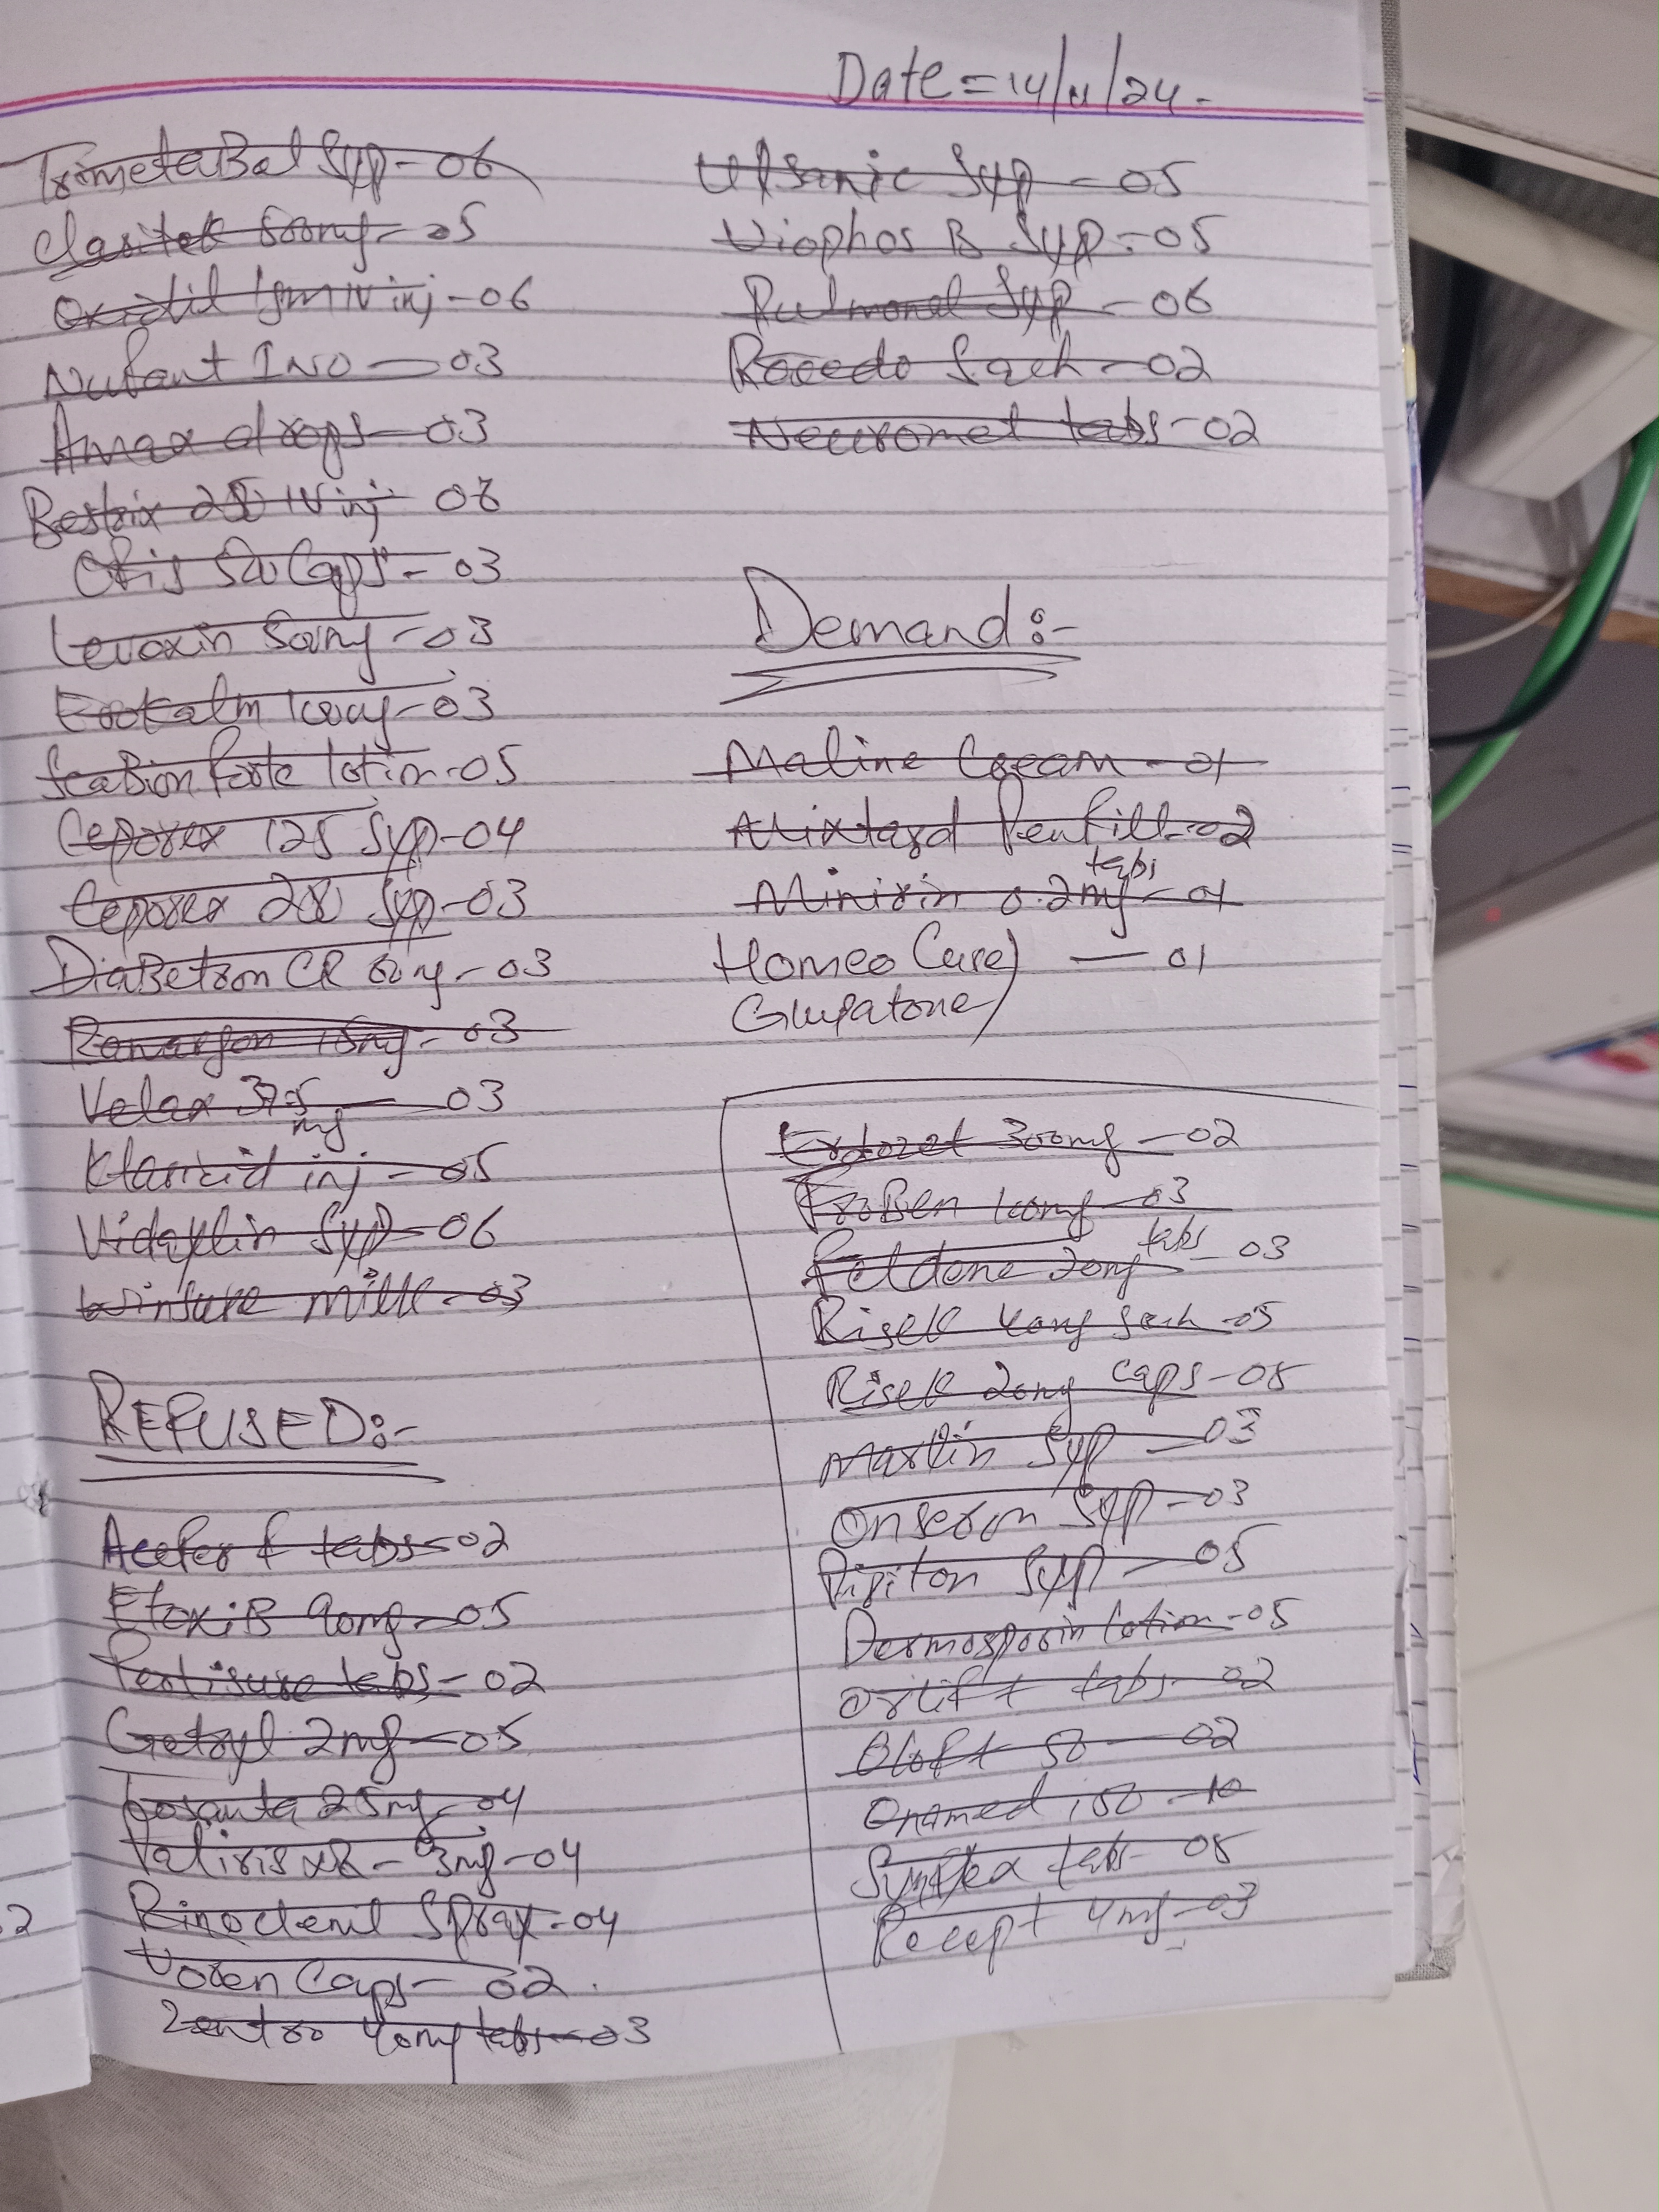 Date = 14/11/24.
TrimetaBol Syp - 06
Claritek 500mg - 05
Oxidil 1gm IV inj - 06
Nufant INO - 03
Amax drops - 03
Bestrix 250 IV inj - 08
Ofis 500 Caps - 03
Levoxin 500mg - 03
100mg - 03
ScaBion Forte lotion - 05
Ceporex 125 Syp - 04
Ceporex 250 Syp - 03
DiaBetron CR 60mg - 03
15mg - 03
Velax 37.5 mg - 03
Klaricid inj - 05
Vidaylin Syp - 06
Winsure milk - 03
REFUSED:-
Acefer F tabs - 02
EtoxiB 90mg - 05
Pertisure tabs - 02
Getryl 2mg - 05
Losanta 25mg - 04
XR - 3mg - 04
Rinoclenil Spray - 04
Voren Caps - 02
Zentro 40mg tabs - 03
Ulsanic Syp - 05
Viophos B Syp - 05
Pulmonol Syp - 06
Racedo Sach - 02
Neuromet tabs - 02
Demand:-
Maline Cream - 01
Mixtard Penfill - 02
Minirin 0.2mg tabs - 01
Homeo Cure) - 01
Glupatone)
Erdozet 300mg - 02
FroBen 100mg - 03
Feldene 20mg tabs - 03
Risek 40mg Sach - 05
Risek 20mg caps - 05
Marlin Syp - 03
Onseron Syp - 03
Piriton Syp - 05
Dermosporin lotion - 05
Ortifit tabs - 02
50 - 02
Onamed 150 - 10
Synflex tabs - 05
Recept 4mg - 03